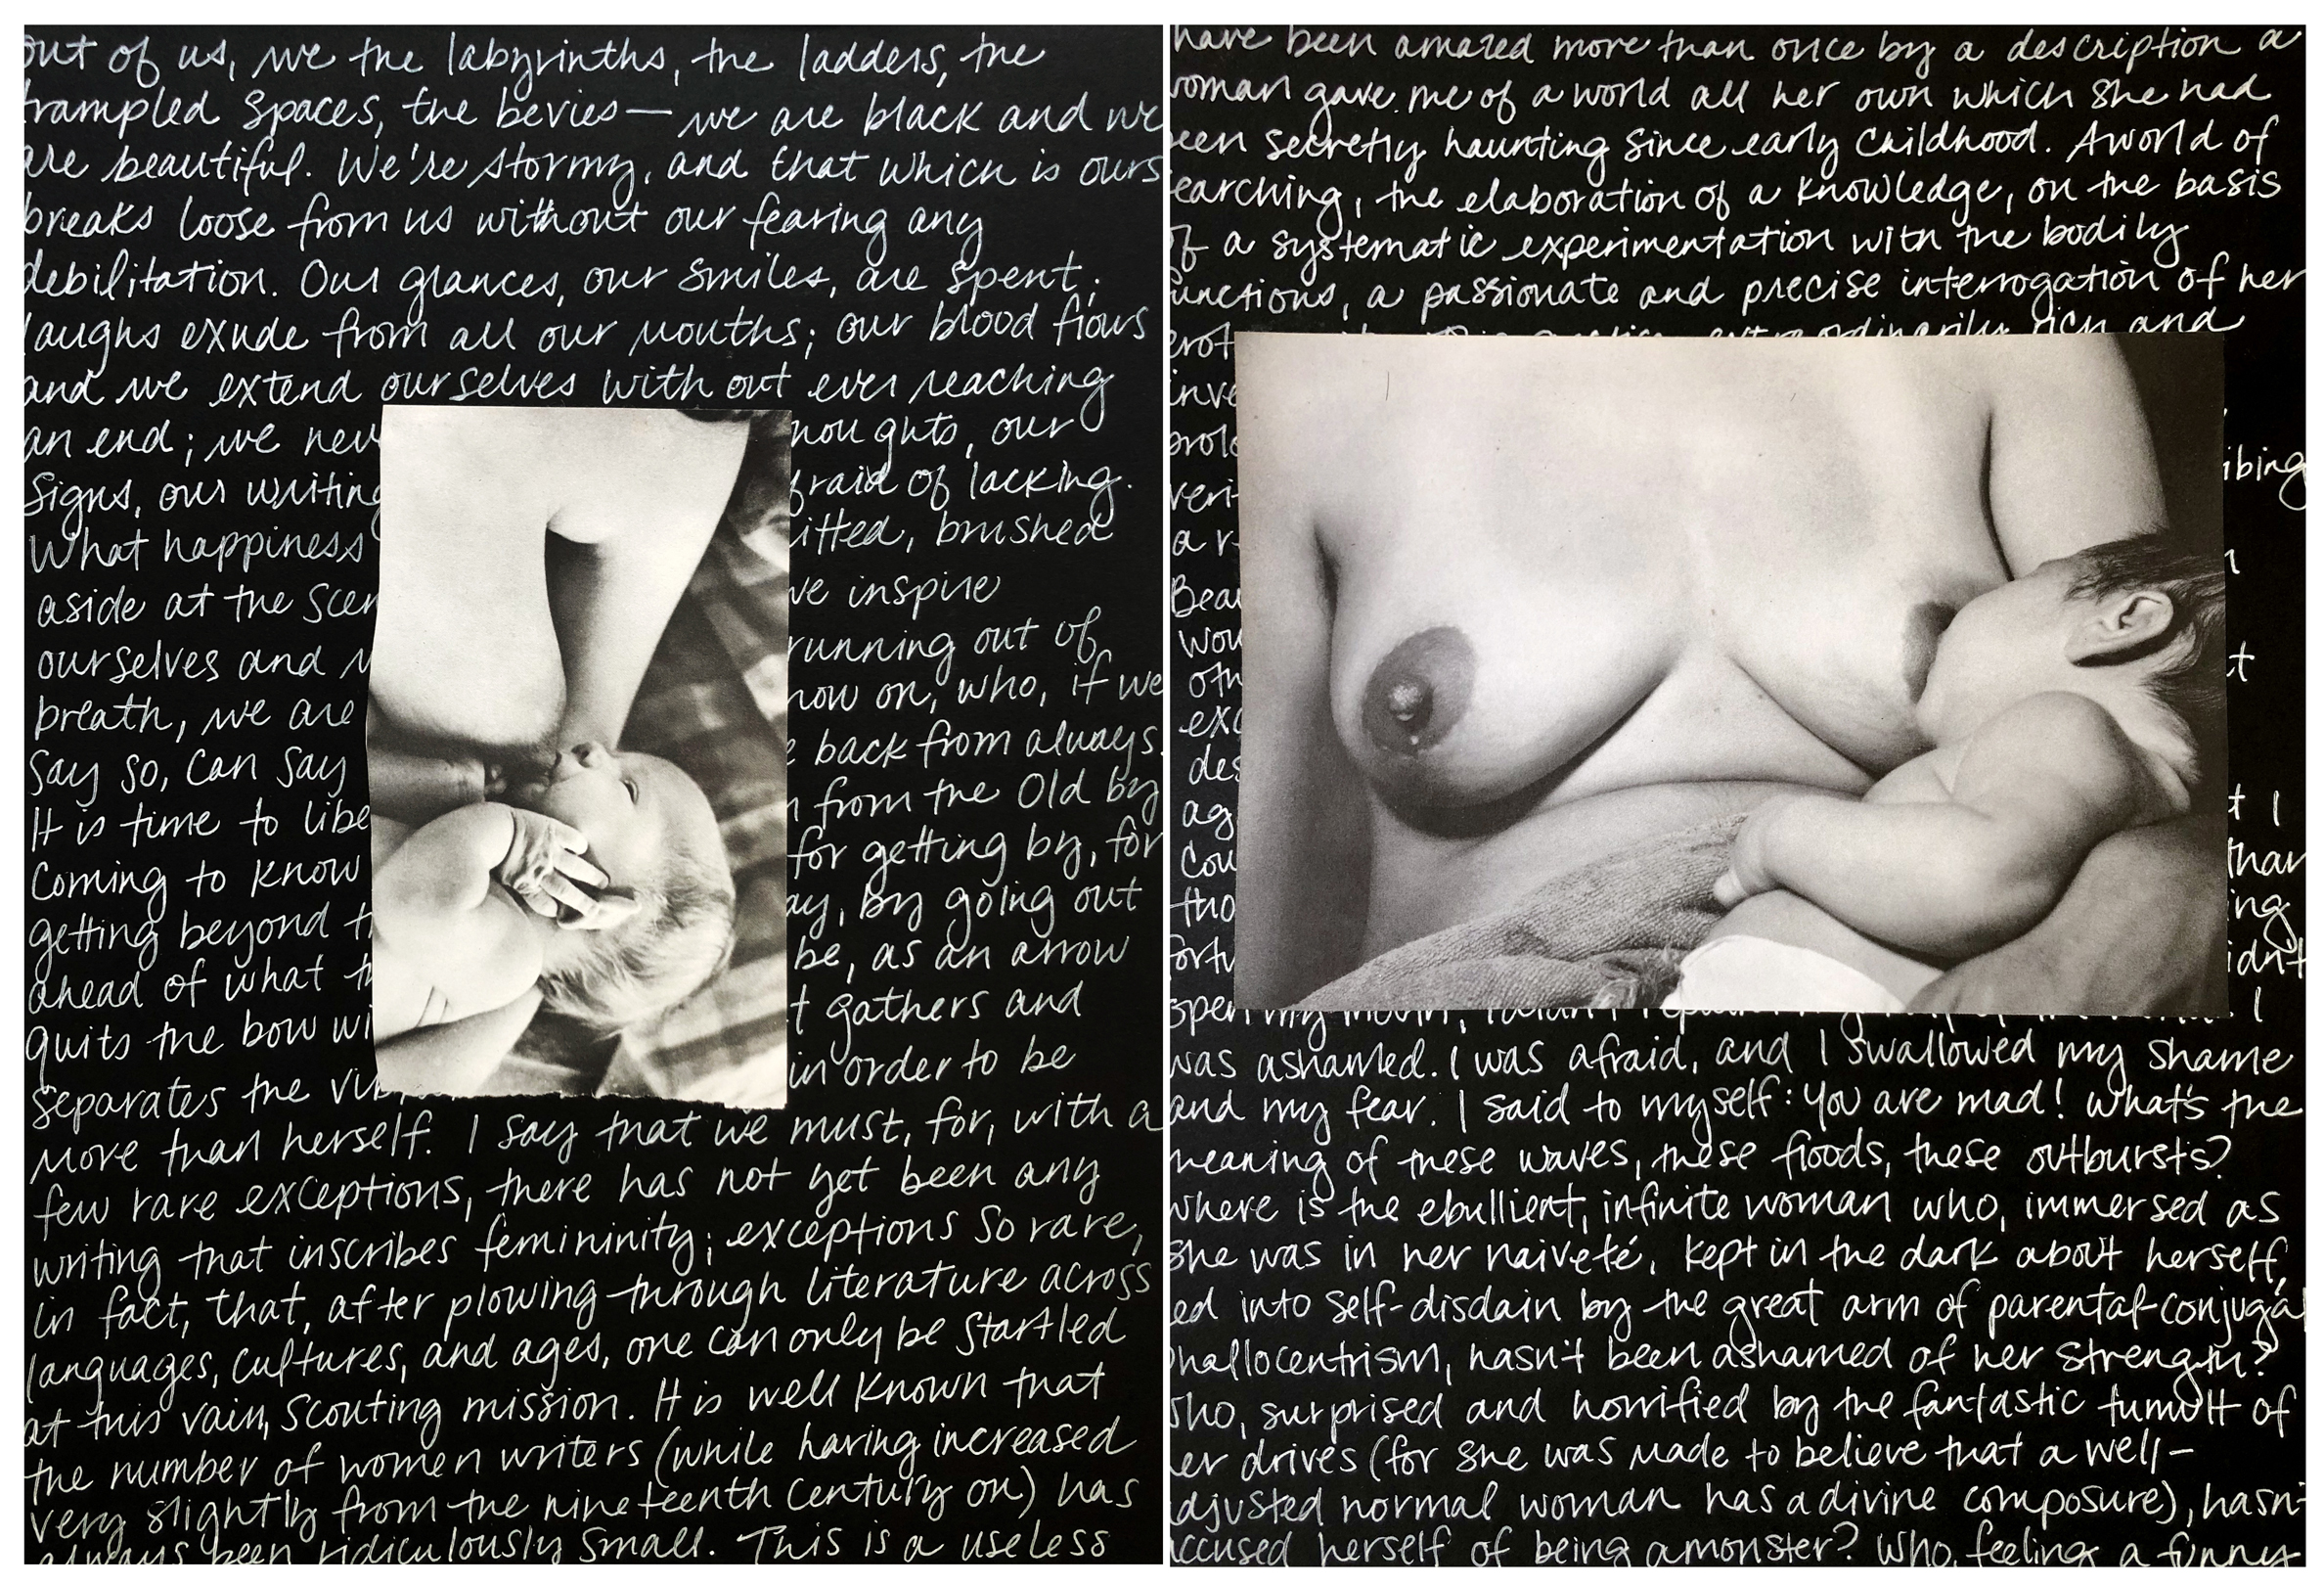 out of us, we the labyrinths, the ladders, the
trampled spaces, the bevies — we are black and we
are beautiful. We're stormy, and that which is ours
breaks loose from us without our fearing any
debilitation. Our glances, our smiles, are spent;
laughs exude from all our mouths; our blood flows
and we extend ourselves with out ever reaching
an end; we nev houghts, our
signs, our writing fraid of lacking.
What happiness itted, brushed
aside at the scen we inspire
ourselves and running out of
breath, we are now on, who, if we
say so, can say back from always.
It is time to libe from the Old by
coming to know for getting by, for
getting beyond th ay, by going out
ahead of what th be, as an arrow
quits the bow wi t gathers and
separates the vib in order to be
more than herself. I say that we must, for, with a
few rare exceptions, there has not yet been any
writing that inscribes femininity; exceptions so rare,
in fact, that, after plowing through literature across
languages, cultures, and ages, one can only be startled
at this vain, scouting mission. It is well known that
the number of women writers (while having increased
very slightly from the nineteenth century on) has
always been ridiculously small. This is a useless
have been amazed more than once by a description a
woman gave me of a world all her own which she had
een secretly haunting since early childhood. A world of
earching, the elaboration of a knowledge, on the basis
of a systematic experimentation with the bodily
functions, a passionate and precise interrogation of her
erot extraordinarily rich and
inve
prolo
veri ibing
a r
Beau
wou
oth t
exc
des
ag t I
cou than
tho ing
fortu idn't
open my mouth, I
was ashamed. I was afraid, and I swallowed my shame
and my fear. I said to myself: You are mad! What's the
meaning of these waves, these floods, these outbursts?
where is the ebullient, infinite woman who, immersed as
she was in her naiveté, kept in the dark about herself,
ed into self-disdain by the great arm of parental-conjugal
phallocentrism, hasn't been ashamed of her strength?
Who, surprised and horrified by the fantastic tumult of
er drives (for she was made to believe that a well-
djusted normal woman has a divine composure), hasn't
accused herself of being a monster? Who, feeling a funny